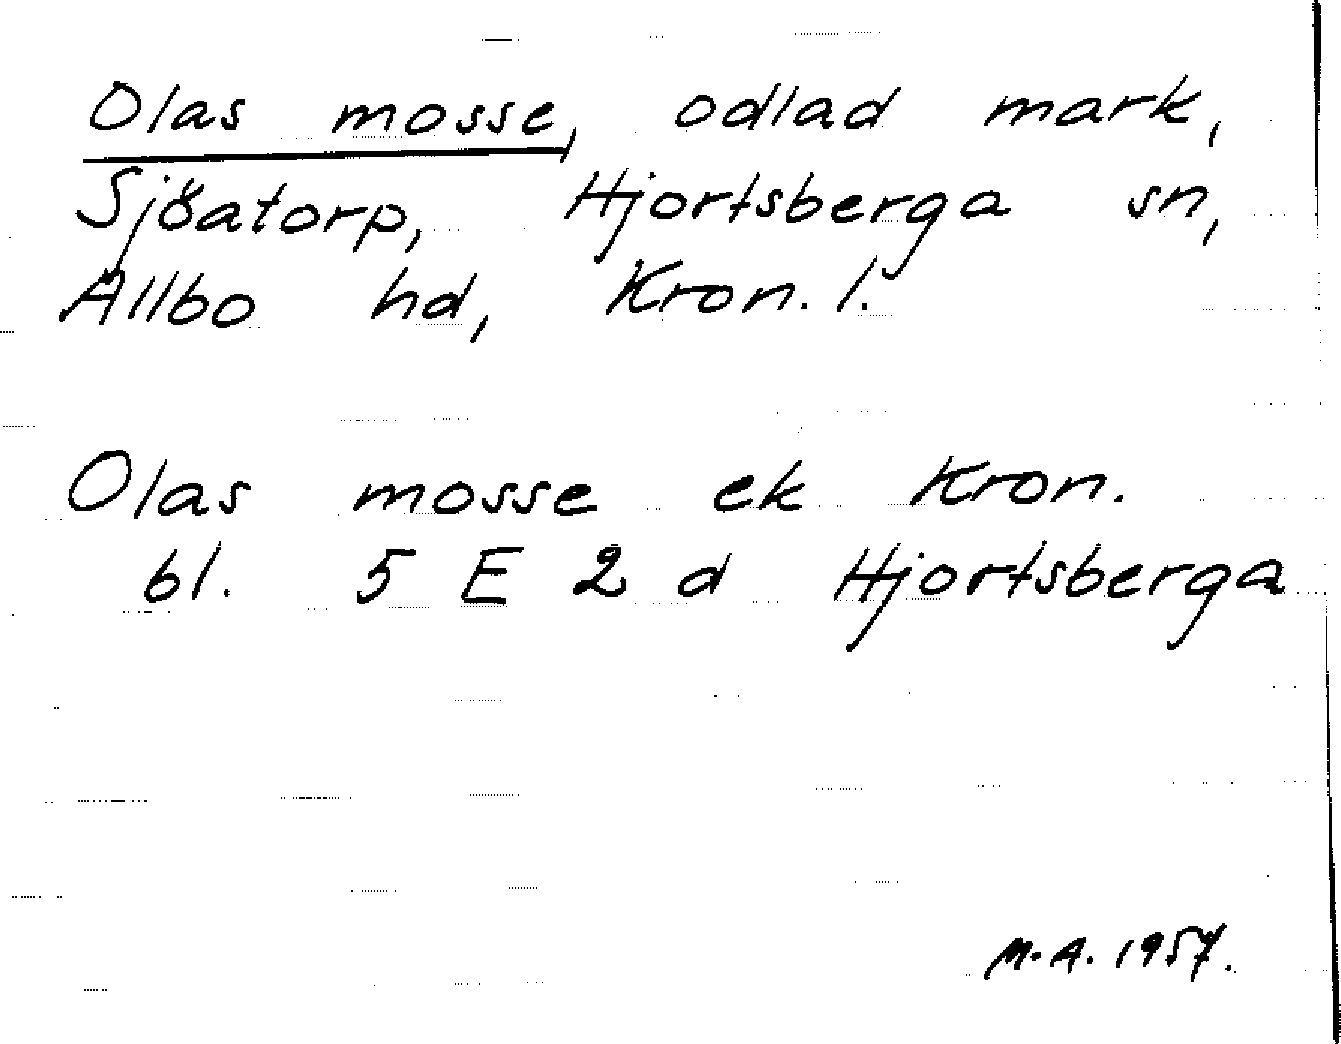 Olas mosse, odlad mark,
Sjöatorp, Hjortsberga sn,
Allbo hd, Kron. l.
Olas mosse ek Kron.
bl. 5 E 2 d Hjortsberga
M.A. 1957.